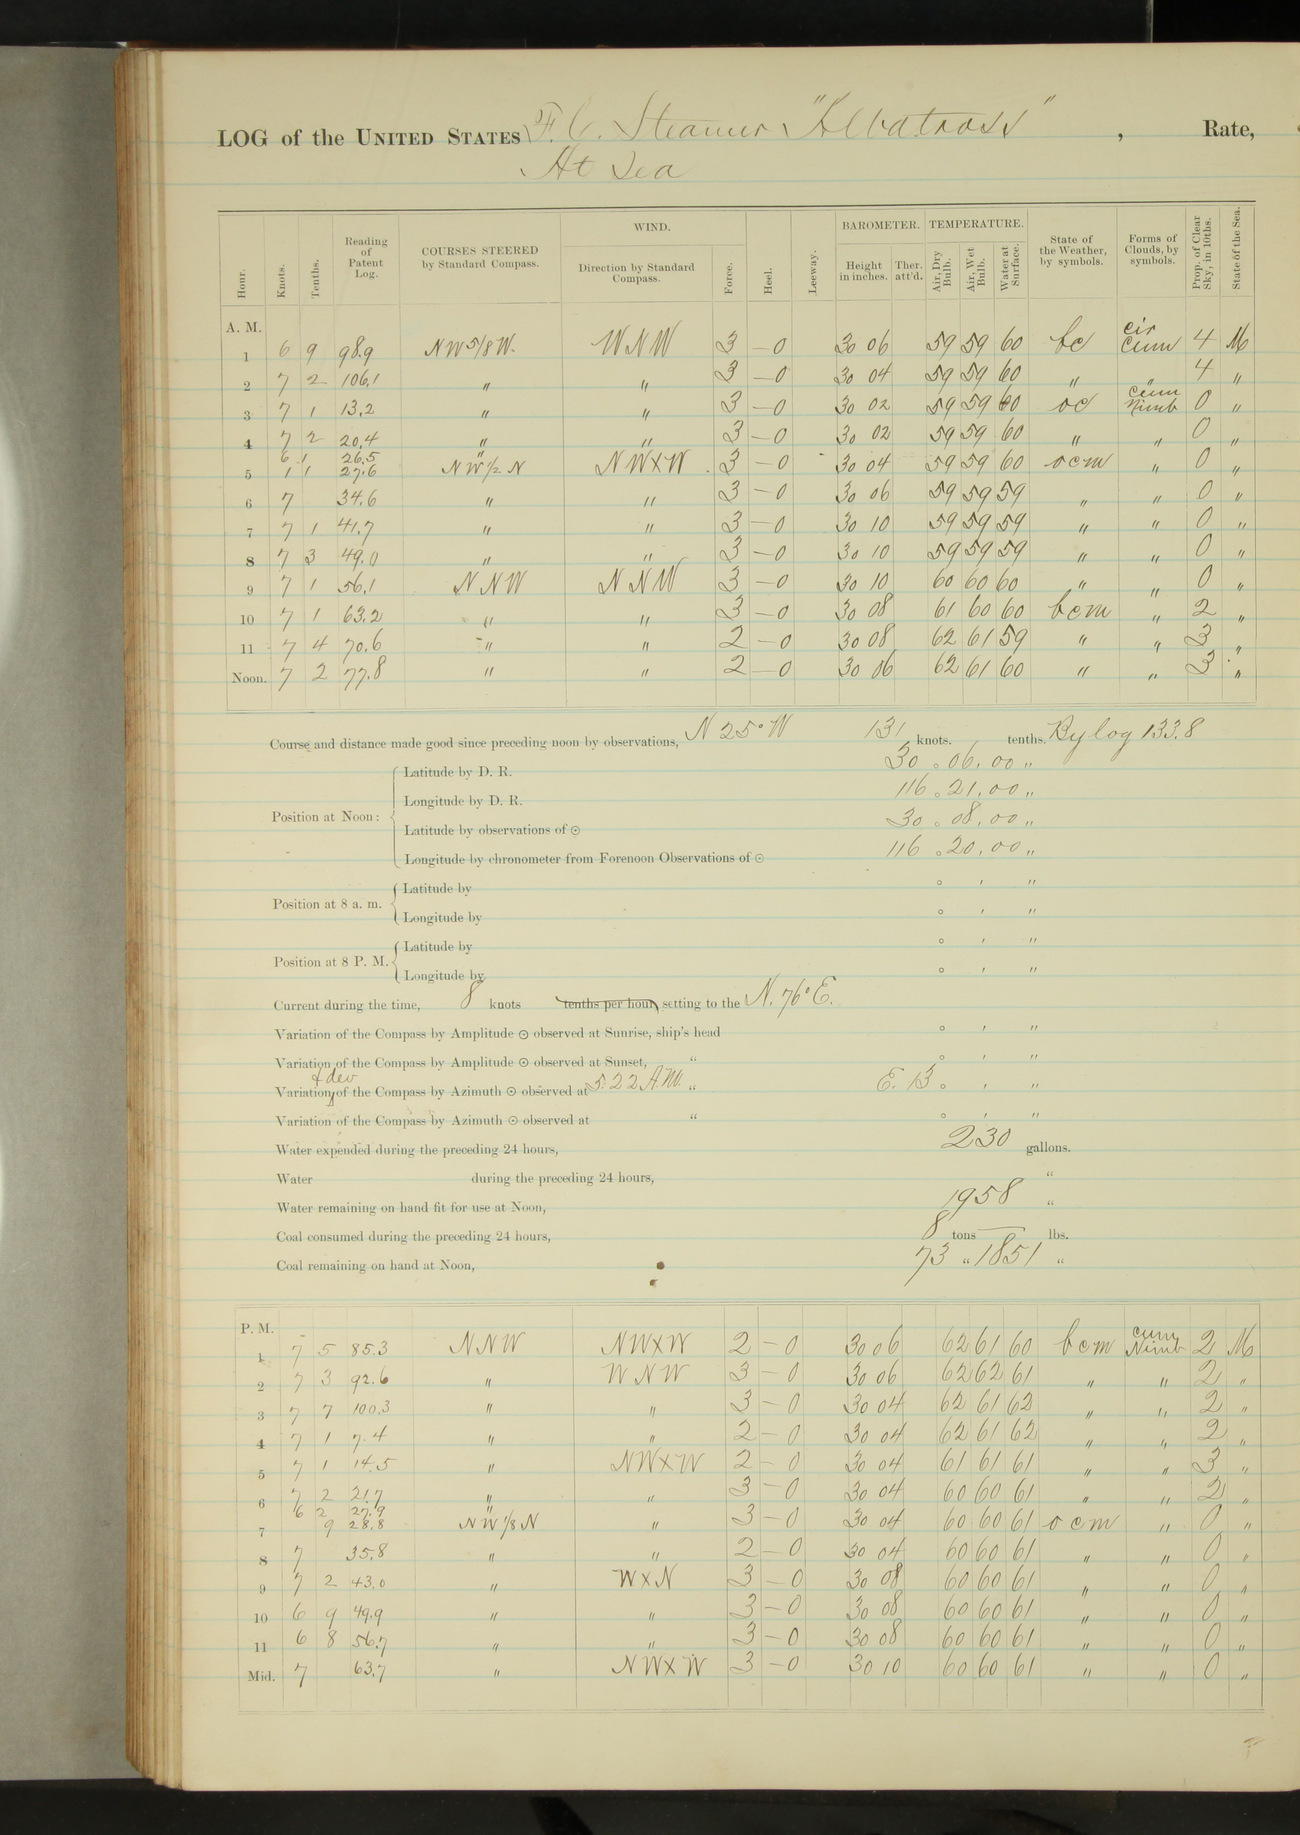 LOG of the UNITED STATES F. C. Steamer "Albatross", Rate,
At Sea
Hour. Knots. Tenths. Reading of Patent Log. COURSES STEERED by Standard Compass. WIND. Direction by Standard Compass. Force. Heel. Leeway. BAROMETER. Height in inches. Ther. att'd. TEMPERATURE. Air, Dry Bulb. Air, Wet Bulb. Water at Surface. State of the Weather, by symbols. Forms of Clouds, by symbols. Prop. of Clear Sky, in 10ths. State of the Sea.
A. M.
1 6 9 98.9 NW 5/8 W. WNW 3 - 0 30 06 59 59 60 bc cir cum 4 M
2 7 2 106.1 " " 3 - 0 30 04 59 59 60 " " 4 "
3 7 1 13.2 " " 3 - 0 30 02 59 59 60 oc cum Nimb 0 "
4 7 2 20.4 " " 3 - 0 30 02 59 59 60 " " 0 "
6 1 26.5 "
5 1 1 27.6 NW 1/2 N NWXW 3 - 0 30 04 59 59 60 ocm " 0 "
6 7 34.6 " " 3 - 0 30 06 59 59 59 " " 0 "
7 7 1 41.7 " " 3 - 0 30 10 59 59 59 " " 0 "
8 7 3 49.0 " " 3 - 0 30 10 59 59 59 " " 0 "
9 7 1 56.1 NNW NNW 3 - 0 30 10 60 60 60 " " 0 "
10 7 1 63.2 " " 3 - 0 30 08 61 60 60 bcm " 2 "
11 7 4 70.6 " " 2 - 0 30 08 62 61 59 " " 3 "
Noon. 7 2 77.8 " " 2 - 0 30 06 62 61 60 " " 3 "
Course and distance made good since preceding noon by observations, N 25° W 131 knots. tenths. By log 133.8
Latitude by D. R. 30 ° 06 ' 00 "
Longitude by D. R. 116 ° 21 ' 00 "
Position at Noon:
Latitude by observations of ☉ 30 ° 08 ' 00 "
Longitude by chronometer from Forenoon Observations of ☉ 116 ° 20 ' 00 "
Latitude by ° ' "
Position at 8 a. m.
Longitude by ° ' "
Latitude by ° ' "
Position at 8 P. M.
Longitude by ° ' "
Current during the time, 8 knots tenths per hour, setting to the N. 76° E.
Variation of the Compass by Amplitude ☉ observed at Sunrise, ship's head ° ' "
Variation of the Compass by Amplitude ☉ observed at Sunset, " ° ' "
& dev
Variation of the Compass by Azimuth ☉ observed at 5.22 A.M. " E. 13 ° ' "
Variation of the Compass by Azimuth ☉ observed at " ° ' "
Water expended during the preceding 24 hours, 230 gallons.
Water during the preceding 24 hours, "
Water remaining on hand fit for use at Noon, 1958 "
Coal consumed during the preceding 24 hours, 8 tons — lbs.
Coal remaining on hand at Noon, 73 " 1851 "
P. M.
1 7 5 85.3 NNW NWXW 2 - 0 30 06 62 61 60 bcm cum Nimb 2 M
2 7 3 92.6 " WNW 3 - 0 30 06 62 62 61 " " 2 "
3 7 7 100.3 " " 3 - 0 30 04 62 61 62 " " 2 "
4 7 1 7.4 " " 2 - 0 30 04 62 61 62 " " 2 "
5 7 1 14.5 " NWXW 2 - 0 30 04 61 61 61 " " 3 "
6 7 2 21.7 " " 3 - 0 30 04 60 60 61 " " 2 "
6 2 27.9 "
7 9 28.8 NW 1/8 N " 3 - 0 30 04 60 60 61 ocm " 0 "
8 7 35.8 " " 2 - 0 30 04 60 60 61 " " 0 "
9 7 2 43.0 " WXN 3 - 0 30 08 60 60 61 " " 0 "
10 6 9 49.9 " " 3 - 0 30 08 60 60 61 " " 0 "
11 6 8 56.7 " " 3 - 0 30 08 60 60 61 " " 0 "
Mid. 7 63.7 " NWXW 3 - 0 30 10 60 60 61 " " 0 "